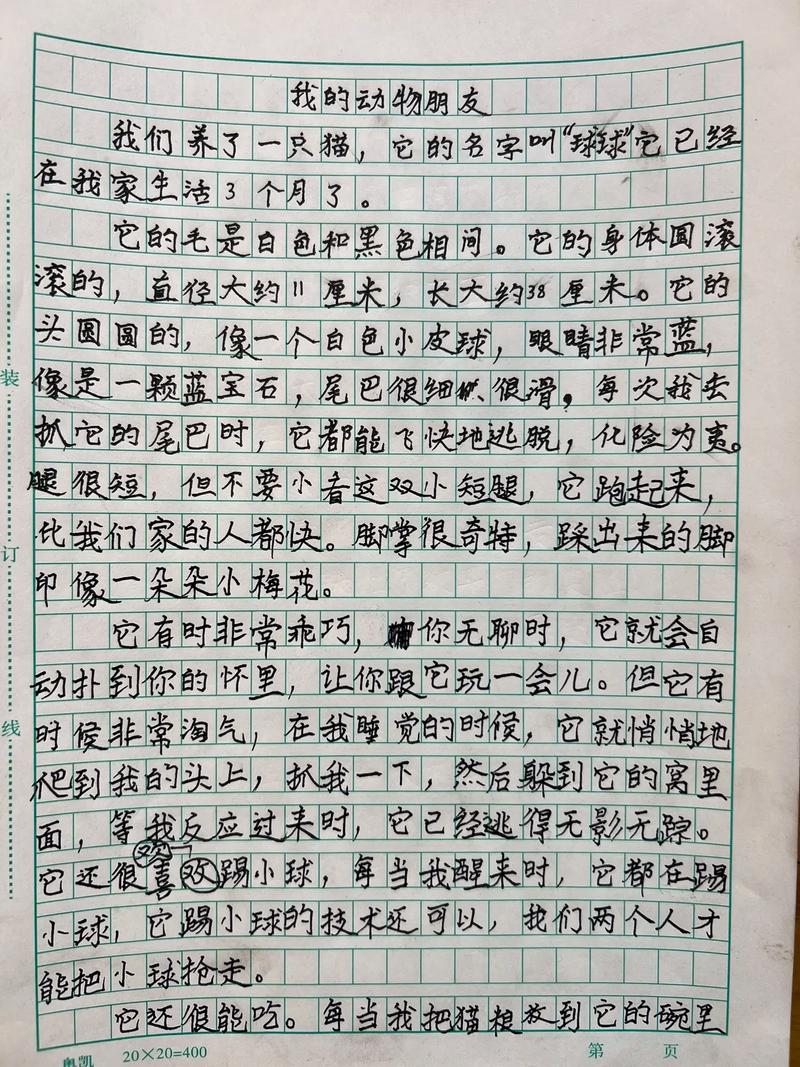 我的动物朋友
我们养了一只猫，它的名字叫“球球”它已经
在我家生活3个月了。
它的毛是白色和黑色相间。它的身体圆滚
滚的，直径大约11厘米，长大约38厘米。它的
头圆圆的，像一个白色小皮球，眼睛非常蓝，
像是一颗蓝宝石，尾巴很细很滑，每次我去
抓它的尾巴时，它都能飞快地逃脱，化险为夷。
腿很短，但不要小看这双小短腿，它跑起来，
比我们家的人都快。脚掌很奇特，踩出来的脚
印像一朵朵小梅花。
它有时非常乖巧，你无聊时，它就会自
动扑到你的怀里，让你跟它玩一会儿。但它有
时候非常淘气，在我睡觉的时候，它就悄悄地
爬到我的头上，抓我一下，然后躲到它的窝里
面，等我反应过来时，它已经逃得无影无踪。
它还很喜欢踢小球，每当我醒来时，它都在踢
小球，它踢小球的技术还可以，我们两个人才
能把小球抢走。
它还很能吃。每当我把猫粮放到它的碗里
装
订
线
奥凯 20×20=400 第 页